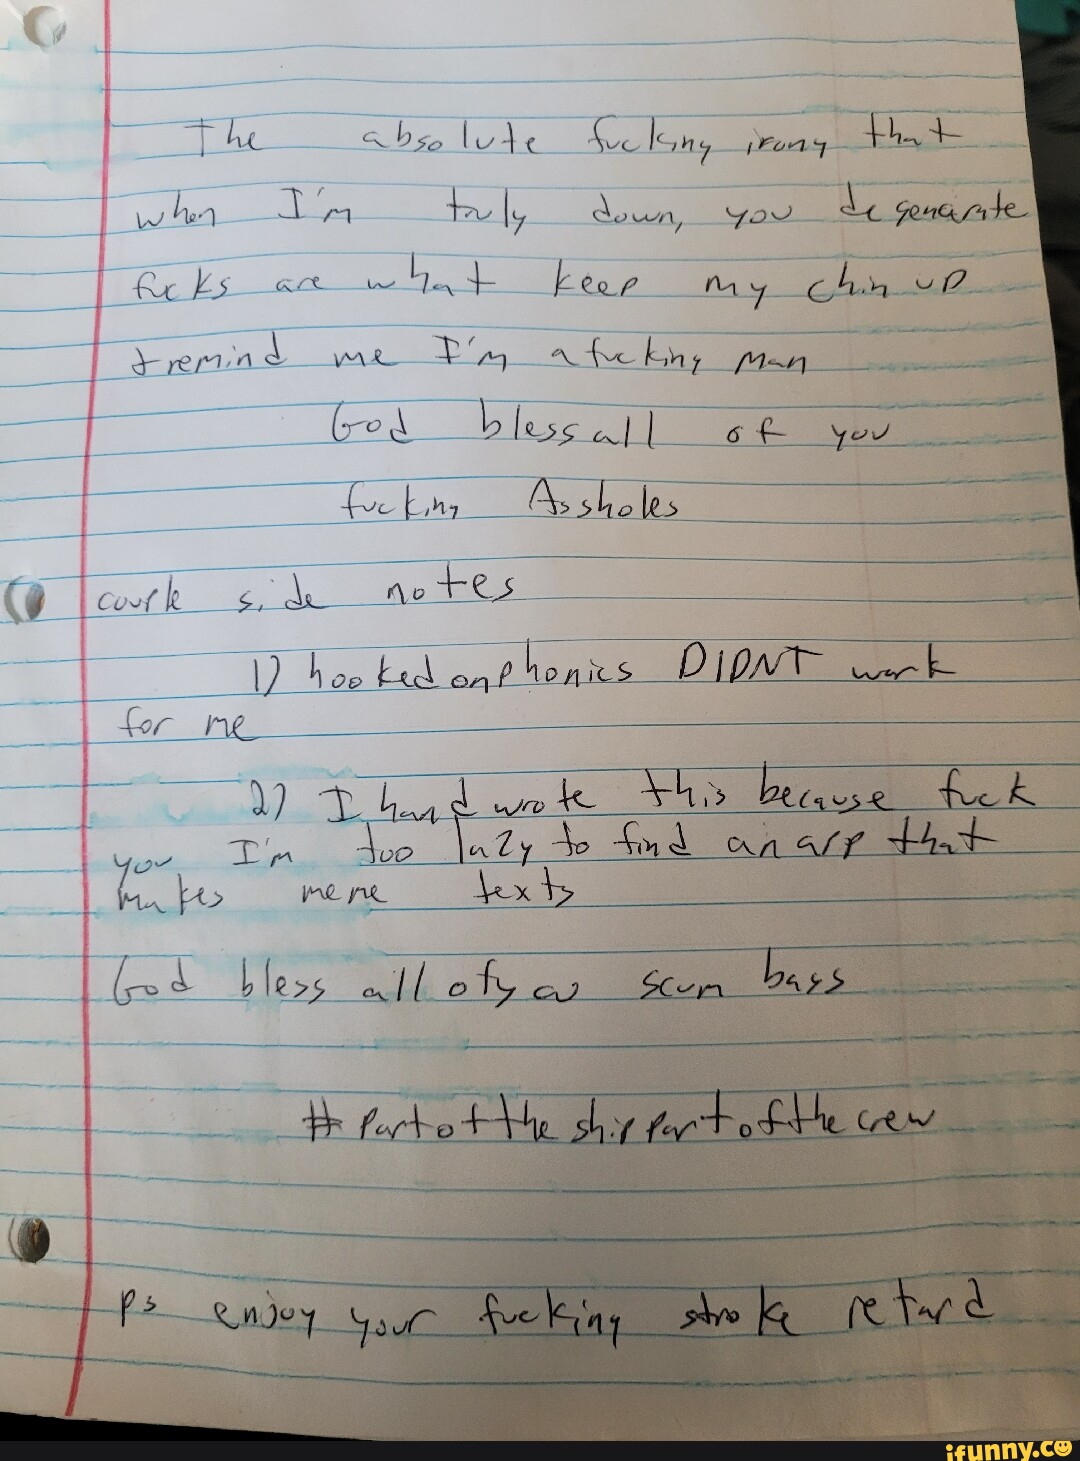 The absolute fucking irony that
when I'm truly down, you degenarate
fucks are what keep my chin up
& remind me I'm a fucking man
God bless all of you
fucking Assholes
couple side notes
1) hooked on phonics DIDNT work
for me
2) I hand wrote this because fuck
you I'm too lazy to find an app that
makes meme texts
God bless all of you scum bags
# Part of the ship part of the crew
ps enjoy your fucking stroke retard
ifunny.co